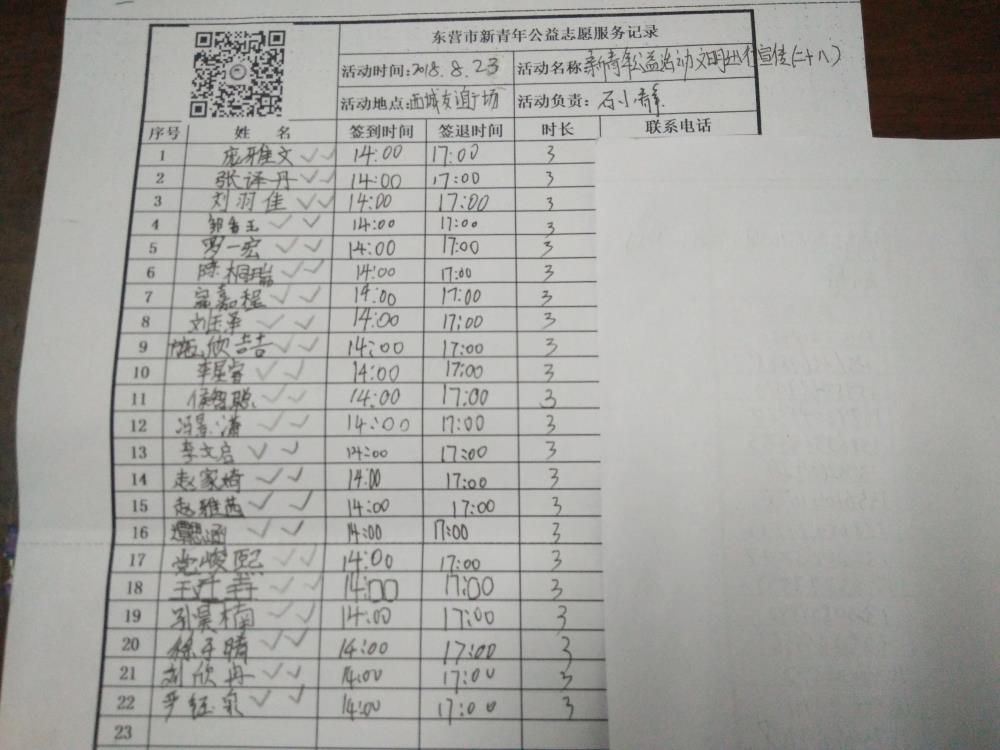 东营市新青年公益志愿服务记录
活动时间:2018.8.23 活动名称 新青年公益活动文明进行宣传(二十八)
活动地点:西城友谊广场 活动负责:石小静
序号 姓 名 签到时间 签退时间 时长 联系电话
1 庞雅文 ✓✓ 14:00 17:00 3
2 张译丹 ✓✓ 14:00 17:00 3
3 刘羽佳 ✓✓ 14:00 17:00 3
4 邹香玉 ✓✓ 14:00 17:00 3
5 罗一宏 ✓✓ 14:00 17:00 3
6 陈桐瑞 ✓✓ 14:00 17:00 3
7 寇嘉程 ✓✓ 14:00 17:00 3
8 刘玉泽 ✓✓ 14:00 17:00 3
9 欣喆 ✓✓ 14:00 17:00 3
10 李星睿 ✓✓ 14:00 17:00 3
11 侯智聪 ✓✓ 14:00 17:00 3
12 冯景潇 ✓✓ 14:00 17:00 3
13 李文启 ✓✓ 14:00 17:00 3
14 赵家琦 ✓✓ 14:00 17:00 3
15 赵雅茜 ✓✓ 14:00 17:00 3
16 涵 ✓✓ 14:00 17:00 3
17 党峻熙 ✓✓ 14:00 17:00 3
18 王 ✓✓ 14:00 17:00 3
19 刘昊楠 ✓✓ 14:00 17:00 3
20 徐子晴 ✓✓ 14:00 17:00 3
21 刘欣冉 ✓✓ 14:00 17:00 3
22 ✓✓ 14:00 17:00 3
23